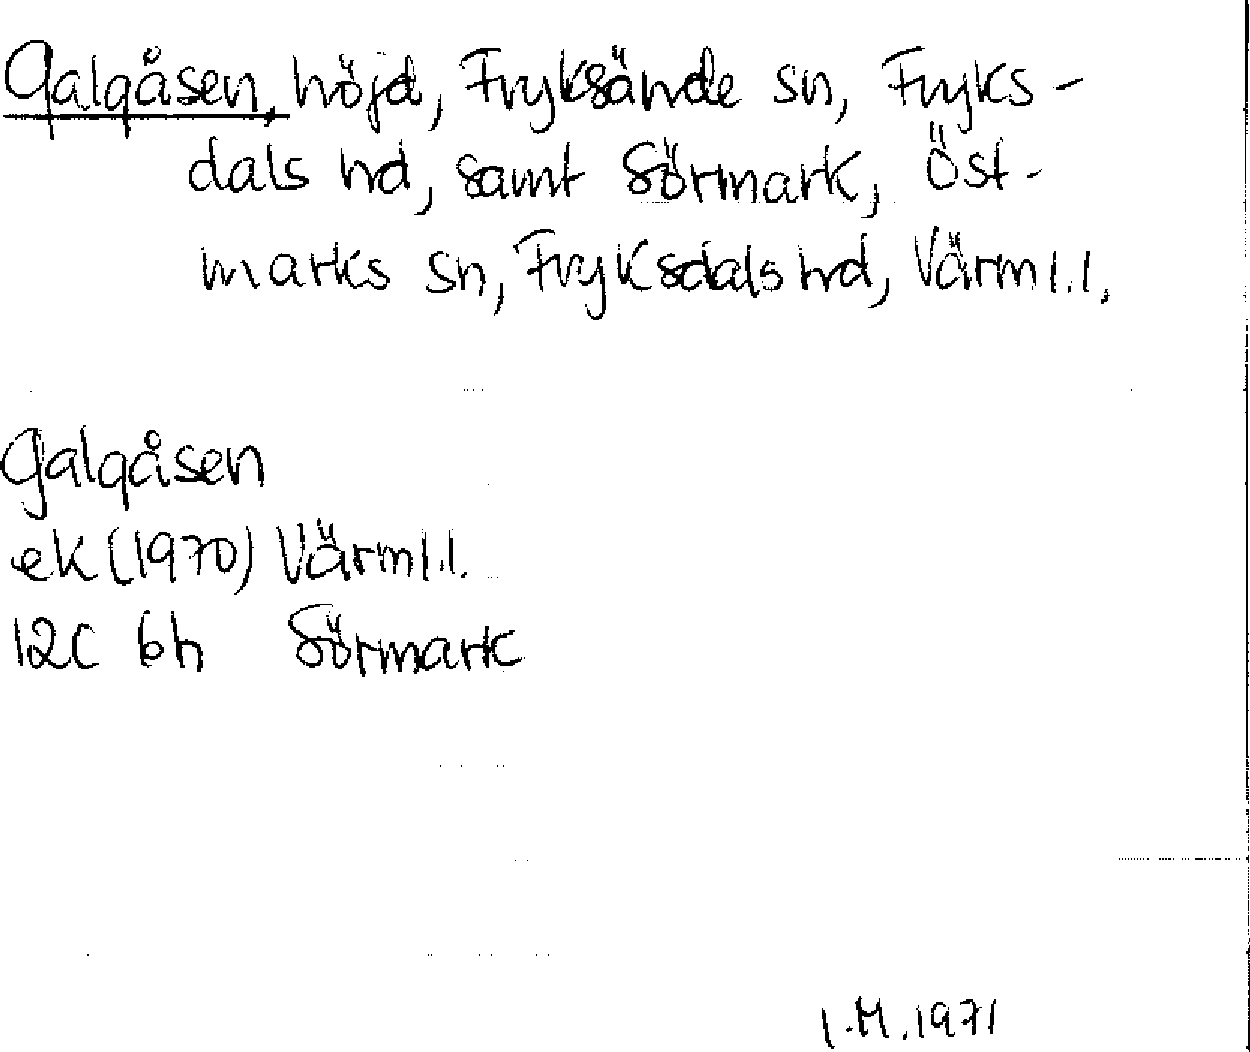 Galgåsen, höjd, Fryksände sn, Fryks-
dals hd, samt Sörmark, Öst-
marks sn, Fryksdals hd, Värml.l.
Galgåsen
ek (1970) Värml.l.
12C 6h Sörmark
I.M. 1971